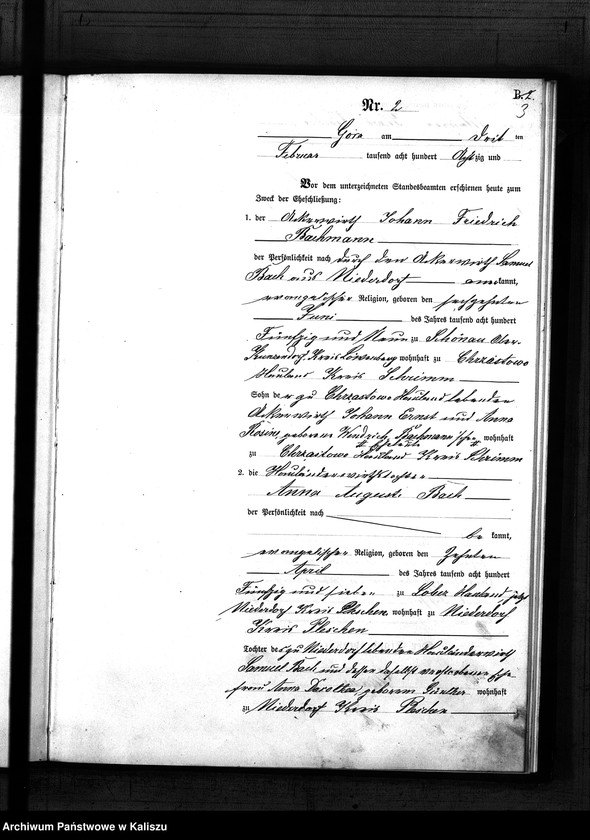 B. 2.
3
Nr. 2
Gora am Drit ten
Februar tausend acht hundert Achtzig und
Vor dem unterzeichneten Standesbeamten erschienen heute zum
Zweck der Eheschließung:
1. der Ackerwirth Johann Friedrich
Bachmann
der Persönlichkeit nach durch den Ackerwirth Samuel
Bach aus Niederdorf aner kannt,
evangelischer Religion, geboren den sechszehnten
Juni des Jahres tausend acht hundert
Fünfzig und Neun zu Schönau Ober-
Kunzendorf, Kreis Löwenberg wohnhaft zu Chrzastowo
Hauland Kreis Schrimm
Sohn der zu Chrzastowo Hauland lebenden
Ackerwirth Johann Ernst und Anna
Rosine, geborene Bachmann'schen wohnhaft
Eheleute
zu Chrzastowo Hauland Kreis Schrimm
2. die Hauländerwirthstochter
Anna Auguste Bach
der Persönlichkeit nach
be kannt,
evangelischer Religion, geboren den Zehnten
April des Jahres tausend acht hundert
Fünfzig und sieben zu Hauland, jetzt
Niederdorf Kreis Pleschen, wohnhaft zu Niederdorf
Kreis Pleschen
Tochter des zu Niederdorf lebenden Hauländerwirth
Samuel Bach und dessen daselbst verstorbenen Ehe-
frau Anna geborene Günther wohnhaft
zu Niederdorf Kreis Pleschen
Archiwum Państwowe w Kaliszu